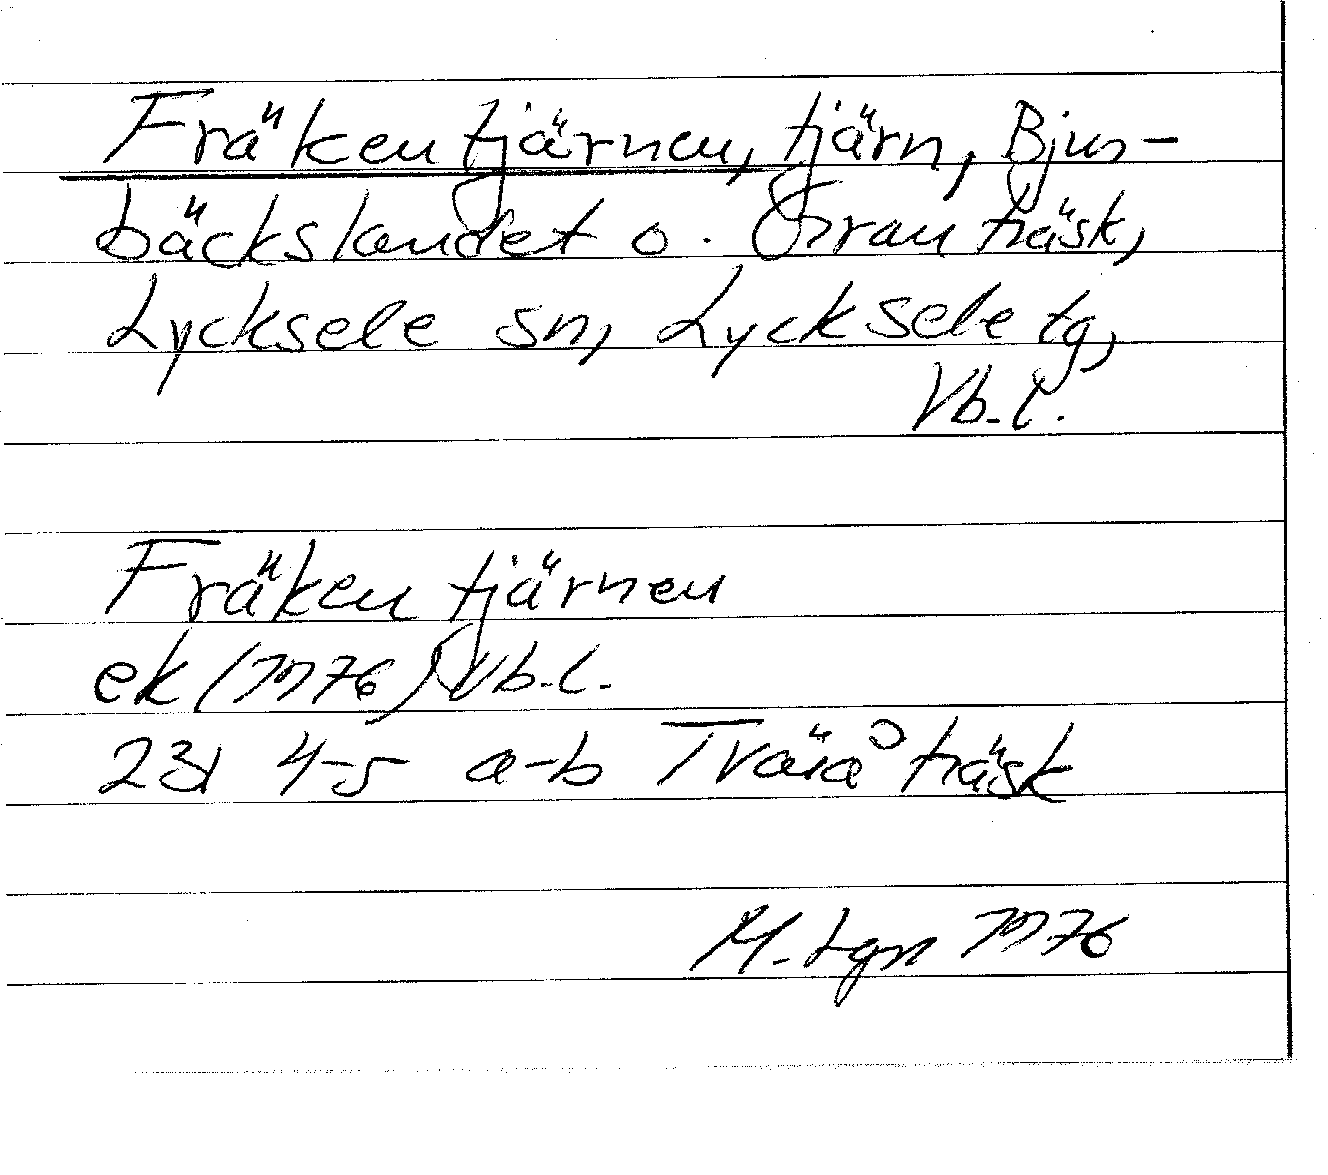 Fräkentjärnen, tjärn, Bjur-
bäckslandet o. Orrauträsk,
Lycksele sn, Lycksele tg,
Vb. l.
Fräkentjärnen
ek (1976) Vb. l.
23I 4-5 a-b Tväråträsk
1976